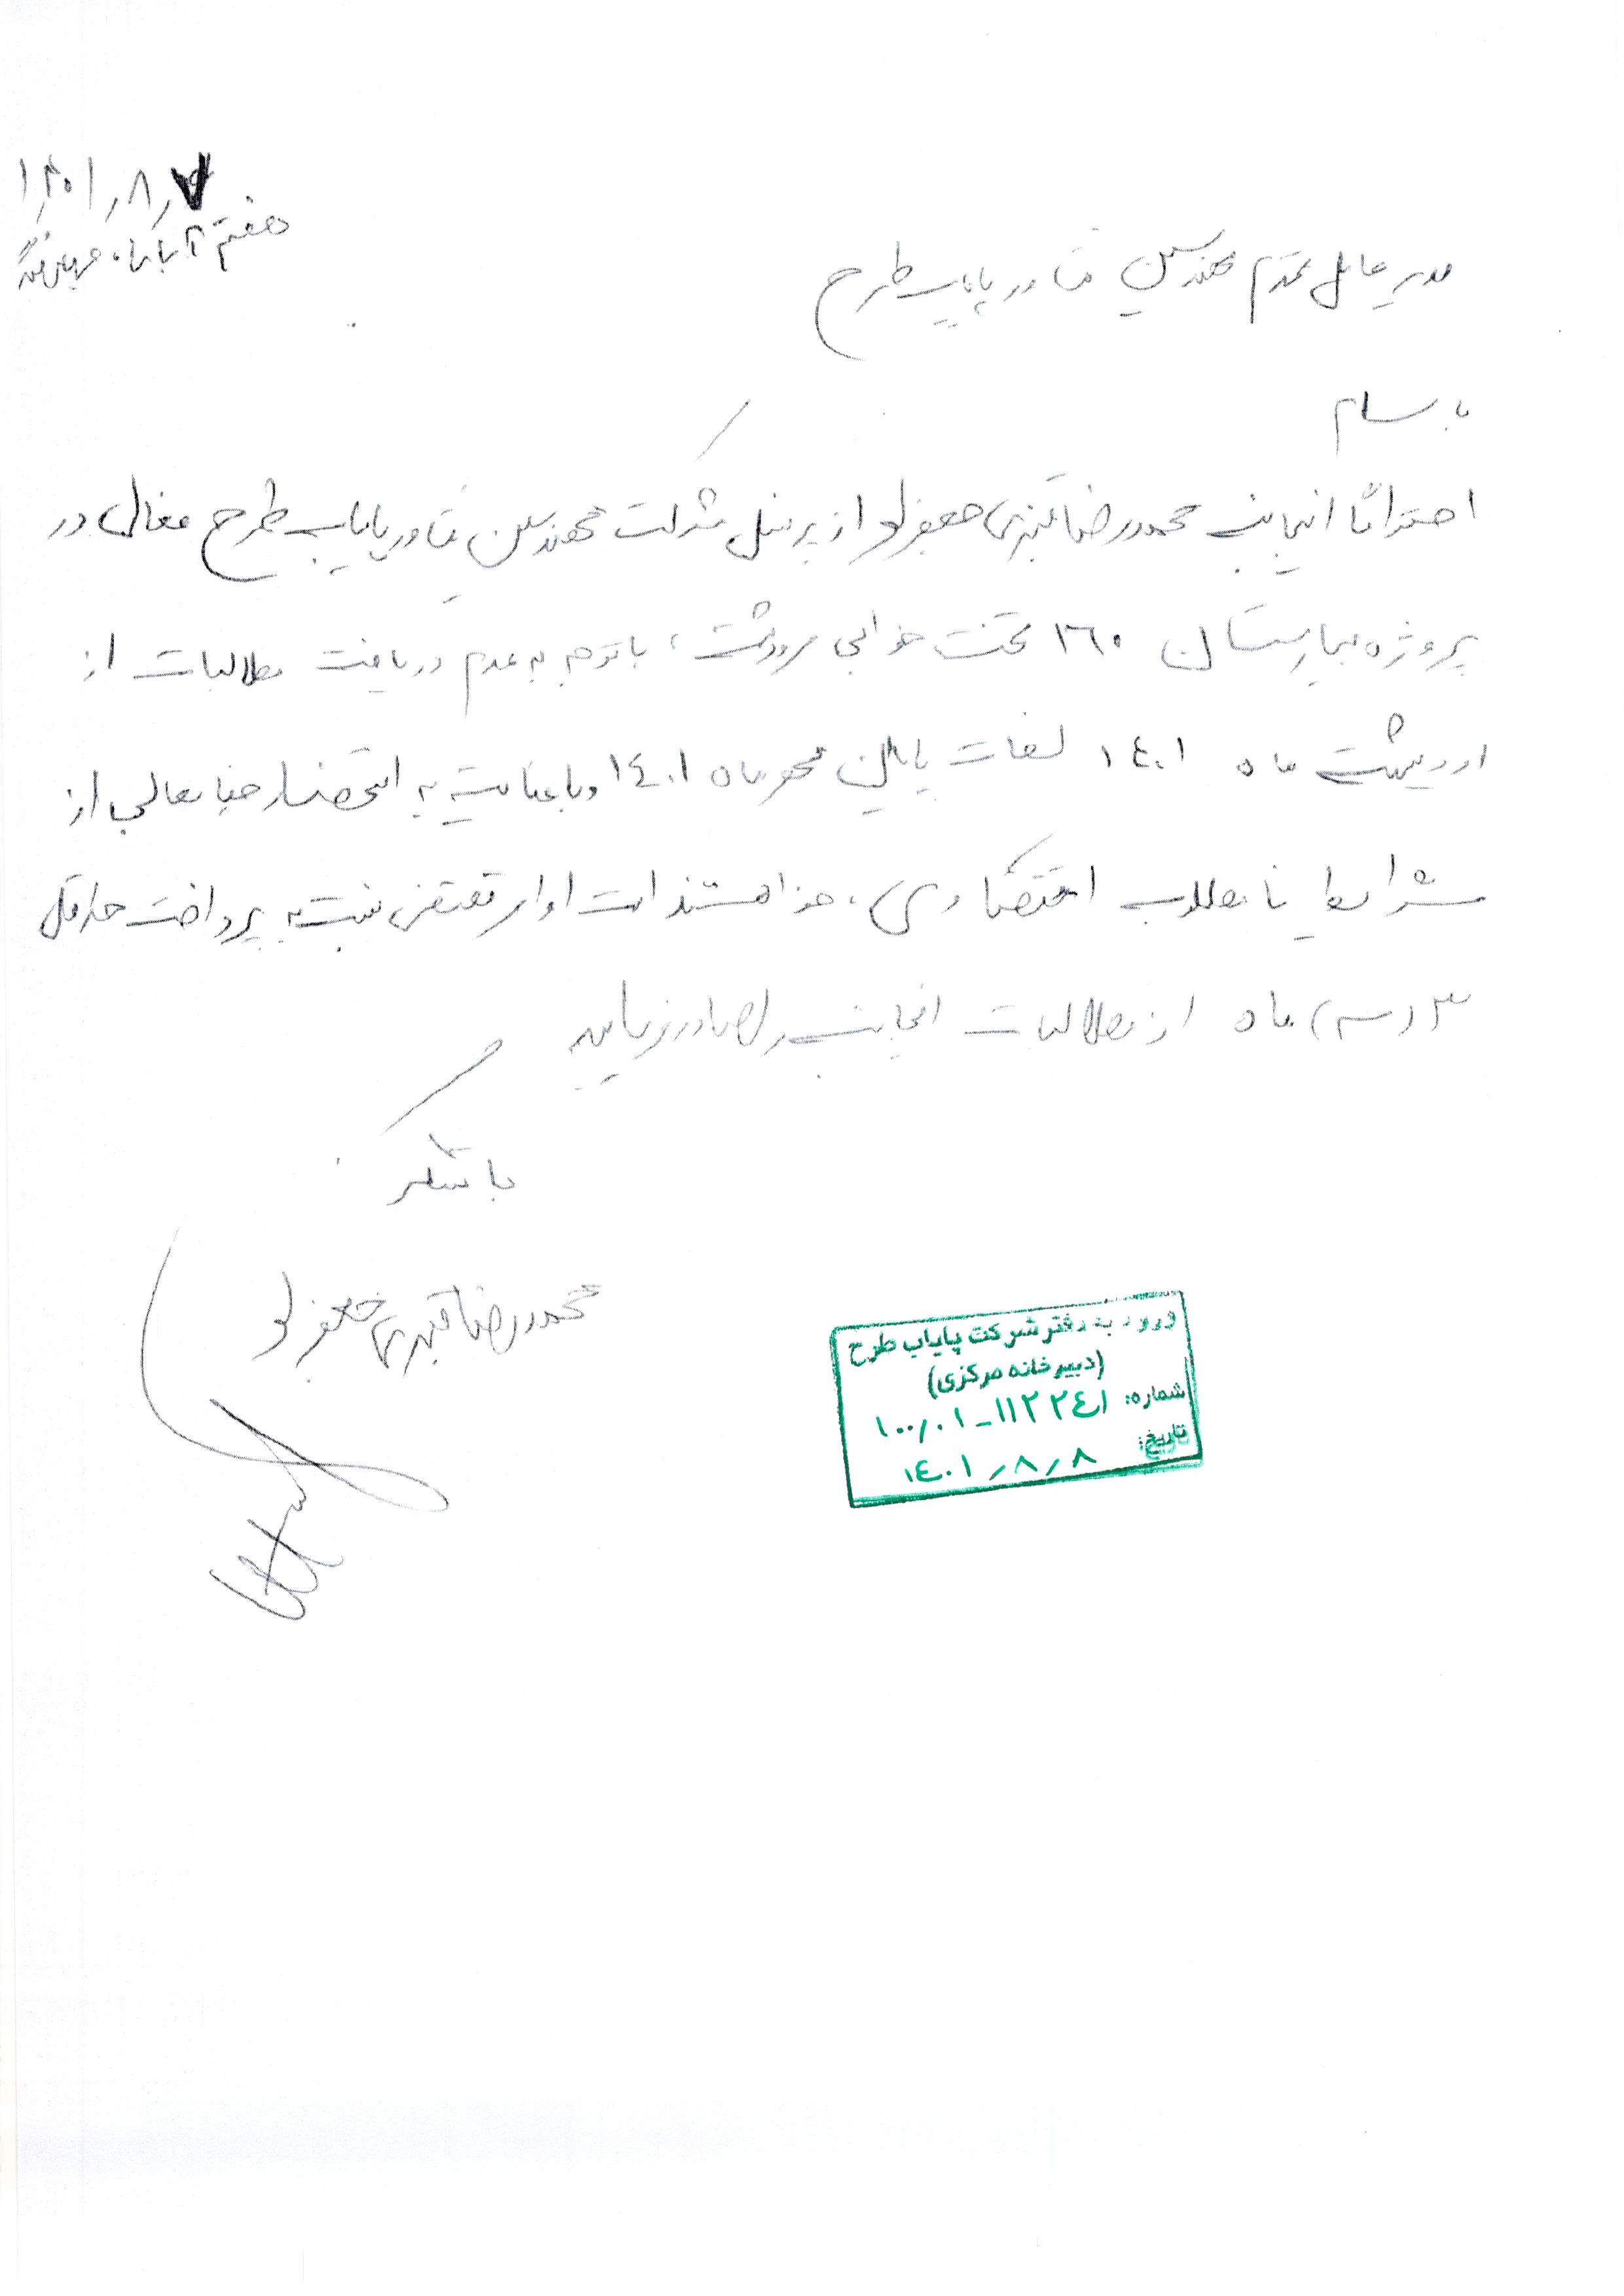 ۱۴۰۱٫۸٫۷
هفتم آبانماه
مدیر عامل محترم مهندسین مشاور پایاب طرح
با سلام
احتراماً اینجانب محمدرضا قنبری جعفرلو از پرسنل شرکت مهندسین مشاور پایاب طرح فعال در
پروژه بیمارستان ۱۶۰ تخت خوابی مرودشت، با توجه به عدم دریافت مطالبات از
اردیبهشت ماه ۱۴۰۱ لغایت پایان مهرماه ۱۴۰۱ و با عنایت به استحضار جنابعالی از
شرایط نامطلوب اقتصادی، خواهشمند است اوامر مقتضی نسبت به پرداخت حداقل
۳ (سه) ماه از مطالبات اینجانب را صادر فرمایید
با تشکر
محمدرضا قنبری جعفرلو
ورود به دفتر شرکت پایاب طرح
(دبیرخانه مرکزی)
شماره: ۱۰۰٫۰۱-۱۱۲۲۴۱
تاریخ: ۱۴۰۱٫۸٫۸